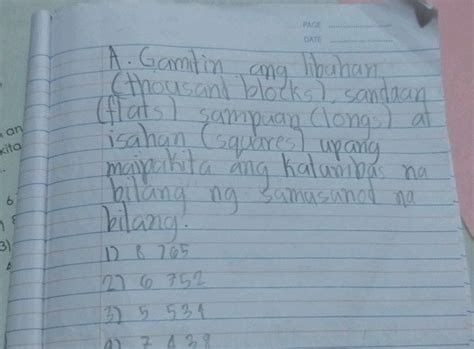 PAGE
DATE
A. Gamitin ang libuhan
(thousand blocks), sandaan
(flats) sampuan (longs) at
isahan (squares) upang
maipakita ang kalumbas na
bilang ng samusunod na
bilang.
1) 8 765
2) 6 752
3) 5 534
4) 7 438
an
kita
6
3)